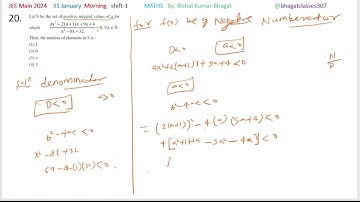 JEE Main 2024 31 January Morning shift-1 MATHS by: Bishal Kumar Bhagat @bhagatclasses307
20. Let S be the set of positive integral values of a for
which (ax² + 2(a+1)x + 9a + 4)/(x² − 8x + 32) < 0, ∀ x ∈ ℝ.
Then, the number of elements in S is :
(1) 1
(2) 0
(3) ∞
(4) 3
denominator
D<0 a>0
b²-4ac<0
x²-8x+32
64-4(1)(32)<0.
for f(x) be Negative Numerator
D<0 a<0
N/D
ax²+2(a+1)x+9a+4<0
a<0
b²-4ac<0
= (2(a+1))²-4(a)(9a+4)<0
4[a²+1+2a-9a²-4a]<0